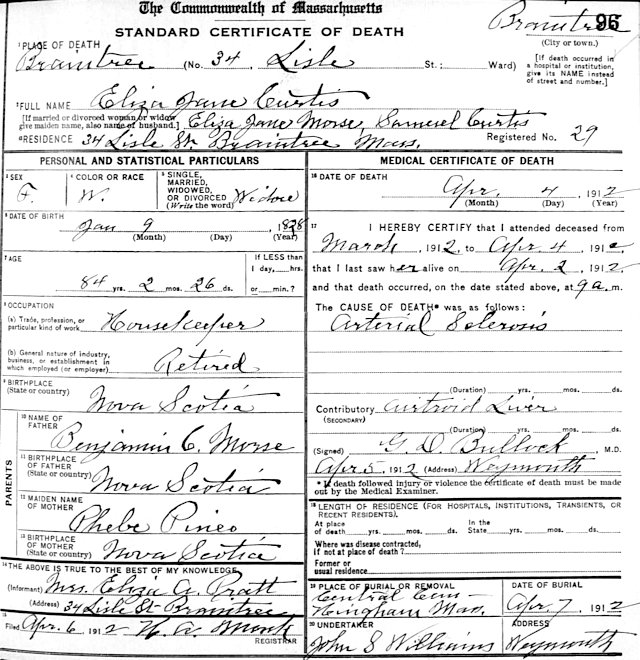 The Commonwealth of Massachusetts
STANDARD CERTIFICATE OF DEATH
Braintree 96
(City or town.)
1 PLACE OF DEATH
Braintree (No. 34, Lisle St.: Ward)
[If death occurred in a hospital or institution, give its NAME instead of street and number.]
2 FULL NAME Eliza Jane Curtis
[If married or divorced woman or widow give maiden name, also name of husband.] Eliza Jane Morse, Samuel Curtis
Registered No. 29
3 RESIDENCE 34 Lisle St. Braintree Mass.
PERSONAL AND STATISTICAL PARTICULARS
3 SEX
F.
4 COLOR OR RACE
W.
5 SINGLE, MARRIED, WIDOWED, OR DIVORCED (Write the word)
Widow
6 DATE OF BIRTH
Jan 9, 1828
(Month) (Day) (Year)
7 AGE
84 yrs. 2 mos. 26 ds.
If LESS than
1 day,....hrs.
or.....min.?
8 OCCUPATION
(a) Trade, profession, or particular kind of work
Housekeeper
(b) General nature of industry, business, or establishment in which employed (or employer)
Retired
9 BIRTHPLACE
(State or country)
Nova Scotia
PARENTS
10 NAME OF FATHER
Benjamin C. Morse
11 BIRTHPLACE OF FATHER
(State or country)
Nova Scotia
12 MAIDEN NAME OF MOTHER
Phebe Pineo
13 BIRTHPLACE OF MOTHER
(State or country)
Nova Scotia
14 THE ABOVE IS TRUE TO THE BEST OF MY KNOWLEDGE
(Informant) Mrs. Eliza A. Pratt
(Address) 34 Lisle St- Braintree
15
Filed Apr. 6, 1912 H. A. Monk
REGISTRAR
MEDICAL CERTIFICATE OF DEATH
16 DATE OF DEATH
Apr. 4, 1912
(Month) (Day) (Year)
17 I HEREBY CERTIFY that I attended deceased from
March, 1912, to Apr 4, 1912,
that I last saw her alive on Apr. 2, 1912.
and that death occurred, on the date stated above, at 9 a.m.
The CAUSE OF DEATH* was as follows:
Arterial Sclerosis
(Duration) yrs. mos. ds.
Contributory Liver
(SECONDARY)
(Duration) yrs. mos. ds.
(Signed) G. D. Bullock, M.D.
Apr 5, 1912 (Address) Weymouth
* If death followed injury or violence the certificate of death must be made out by the Medical Examiner.
18 LENGTH OF RESIDENCE (FOR HOSPITALS, INSTITUTIONS, TRANSIENTS, OR RECENT RESIDENTS).
At place of death yrs. mos. ds. In the State yrs. mos. ds.
Where was disease contracted, if not at place of death?
Former or usual residence
19 PLACE OF BURIAL OR REMOVAL
Central Cem- Hingham Mass.
DATE OF BURIAL
Apr. 7, 1912
20 UNDERTAKER
John S Williams
ADDRESS
Weymouth